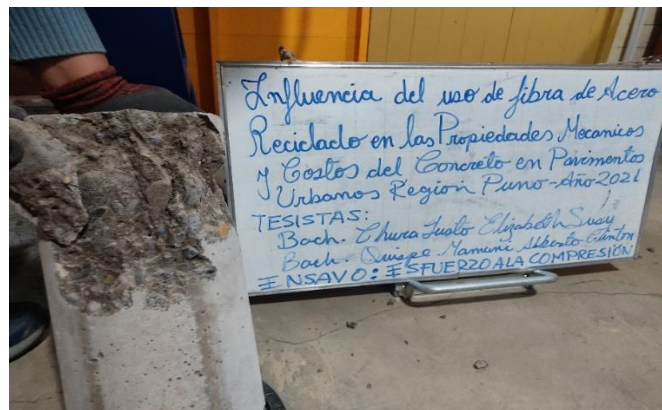 Influencia del uso de fibra de Acero
Reciclado en las Propiedades Mecanicos
y Costos del Concreto en Pavimentos
Urbanos Region Puno-Año 2021
TESISTAS:
Bach. Chura Justo Elizabeth Susy
Bach. Quispe Mamani Alberto Clinton
ENSAYO: ESFUERZO A LA COMPRESIÓN